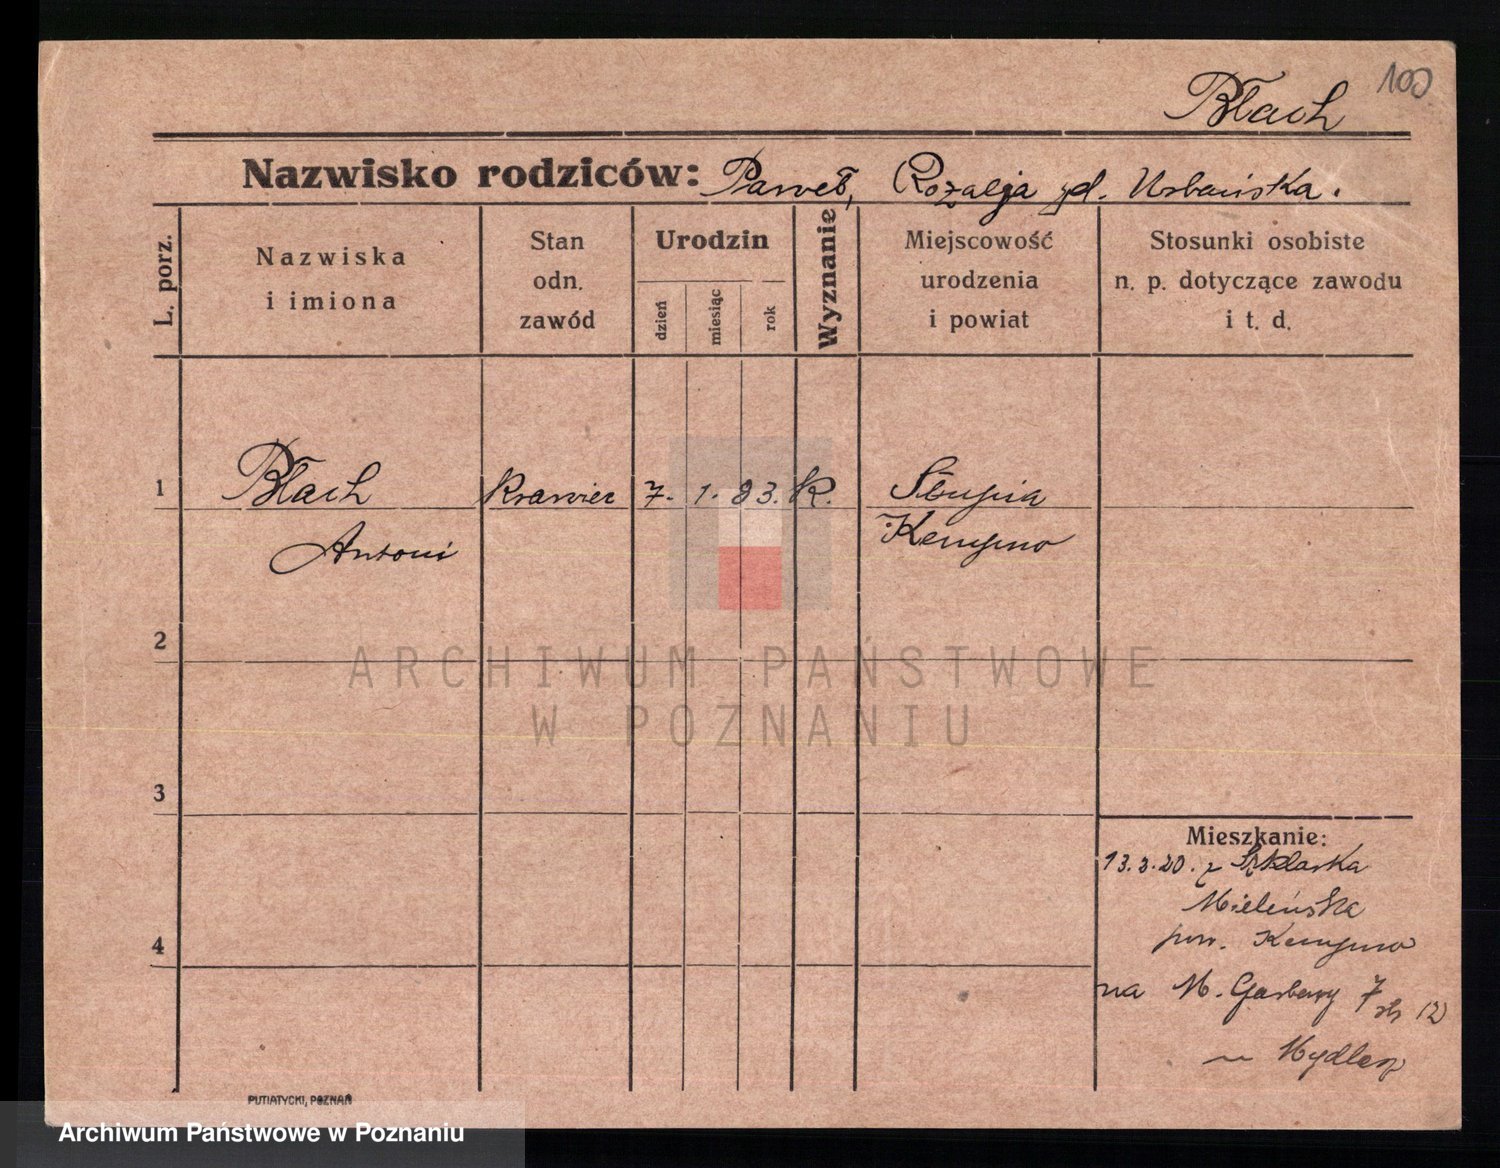 100
Błach
Nazwisko rodziców: Paweł, Rozalja zd. Urbańska.
L. porz.
Nazwiska
i imiona
Stan
odn.
zawód
Urodzin
dzień
miesiąc
rok
Wyznanie
Miejscowość
urodzenia
i powiat
Stosunki osobiste
n. p. dotyczące zawodu
i t. d.
1
Błach
Krawiec
7. 1. 83.
K.
Słupia
Antoni
Kempno
2
ARCHIWUM PAŃSTWOWE
W POZNANIU
3
Mieszkanie:
13.3.20. z Szklarka
Mielęńska
4
pow. Kempno
na M. Garbary 7
PUTIATYCKI, POZNAŃ
Archiwum Państwowe w Poznaniu